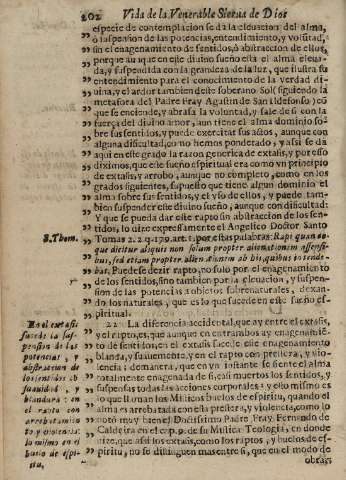 202 Vida de la Venerable Sierua de Dios
especie de contemplacion se da la eleuacion del alma,
ò suspension de las potencias, entendimiento, y volũtad,
sin el enagenamiento de sentidos, ò abstraccion de ellos,
porque aunque en este diuino sueño esta el alma eleua-
da, y suspendida con la grandeza de la luz, que ilustra su
entendimiento para el conocimiento de la verdad di-
uina, y el ardor tambien deste soberano Sol (siguiendo la
metafora del Padre Fray Agustin de San Ildefonso) cõ
que se enciende, y abrasa la voluntad, y sale de sì con la
fuerça del diuino amor, aun tiene el alma dominio so-
bre sus sentidos, y puede exercitar sus actos, aunque con
alguna dificultad, como hemos ponderado, y assi se dà
aqui en este grado la razon generica de extasis, y por esso
diximos, que este sueño espiritual era como vn principio
de extasis, y arrobo, aunque no completo, como en los
grados siguientes, supuesto que tiene algun dominio el
alma sobre sus sentidos, y el vso de ellos, y puede tam-
bien suspender este diuino sueño, aunque con dificultad:
Y que se pueda dar este rapto sin abstraccion de los sen-
tidos, lo dize expressamente el Angelico Doctor Santo
S. Thom. Tomas 2. 2. q. 170. art. 1. por estas palabras: Rapi quan-
doque dicitur aliquis non solum propter alienationem à sensi-
bus, sed etiam propter alienationem ab his, quibus intende-
bat. Puedese dezir rapto, no solo por el enagenamiento
de los sentidos, sino tambien por la eleuacion, y suspen-
sion de las potencias à objectos sobrenaturales, dexan-
do los naturales, que es lo que sucede en este sueño es-
piritual.
En el extasis 22 La diferencia accidental, que ay entre el extasis,
sucede la sus- y el rapto, es, que aunque en entrambos ay enagenamiẽ-
pension de las to de sentidos; en el extasis sucede este enagenamiento
potencias, y blanda, y suauemente, y en el rapto con presteza, y vio-
abstraccion de lencia; demanera, que en vn instante se siente el alma
los sentidos cõ totalmente enagenada de sì, sus muertos los sentidos, y
suauidad, y suspensas todas las acciones corporales: y esto mismo es
blandura: en lo que llaman los Misticos buelos de espiritu, quando el
el rapto con alma es arrebatada con esta presteza, y violencia, como lo
arrebatamien notò muy bien el Doctissimo Padre Fray Fernando de
to, y violencia: Caldeira en el cap. 9. de su Mistica Teologia, en donde
lo mismo en el dize, que assi los extasis, como los raptos, y buelos de es-
buelo de espi- piritu, no se distinguen mas entre sì, que en el modo de
ritu. obrar;